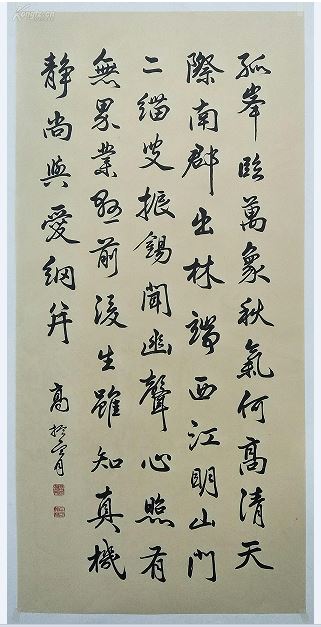 孤峯臨萬象秋氣何高清天
際南郡出林端西江明山門
二緇叟振錫聞幽聲心照有
無界業懸前後生雖知真機
静尚與愛網并
高振霄